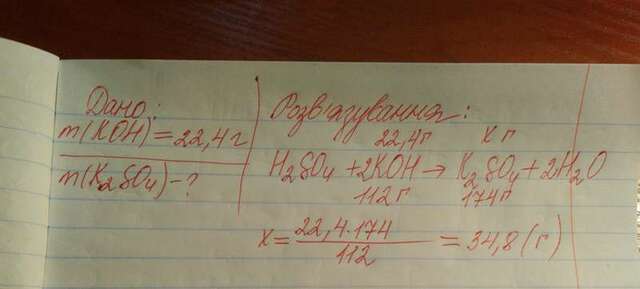 Дано:
m(KOH)=22,4г
m(K₂SO₄)-?
Розв'язування:
22,4г x г
H₂SO₄ +2KOH → K₂SO₄+2H₂O
112г 174г
x= 22,4·174 / 112 = 34,8(г)